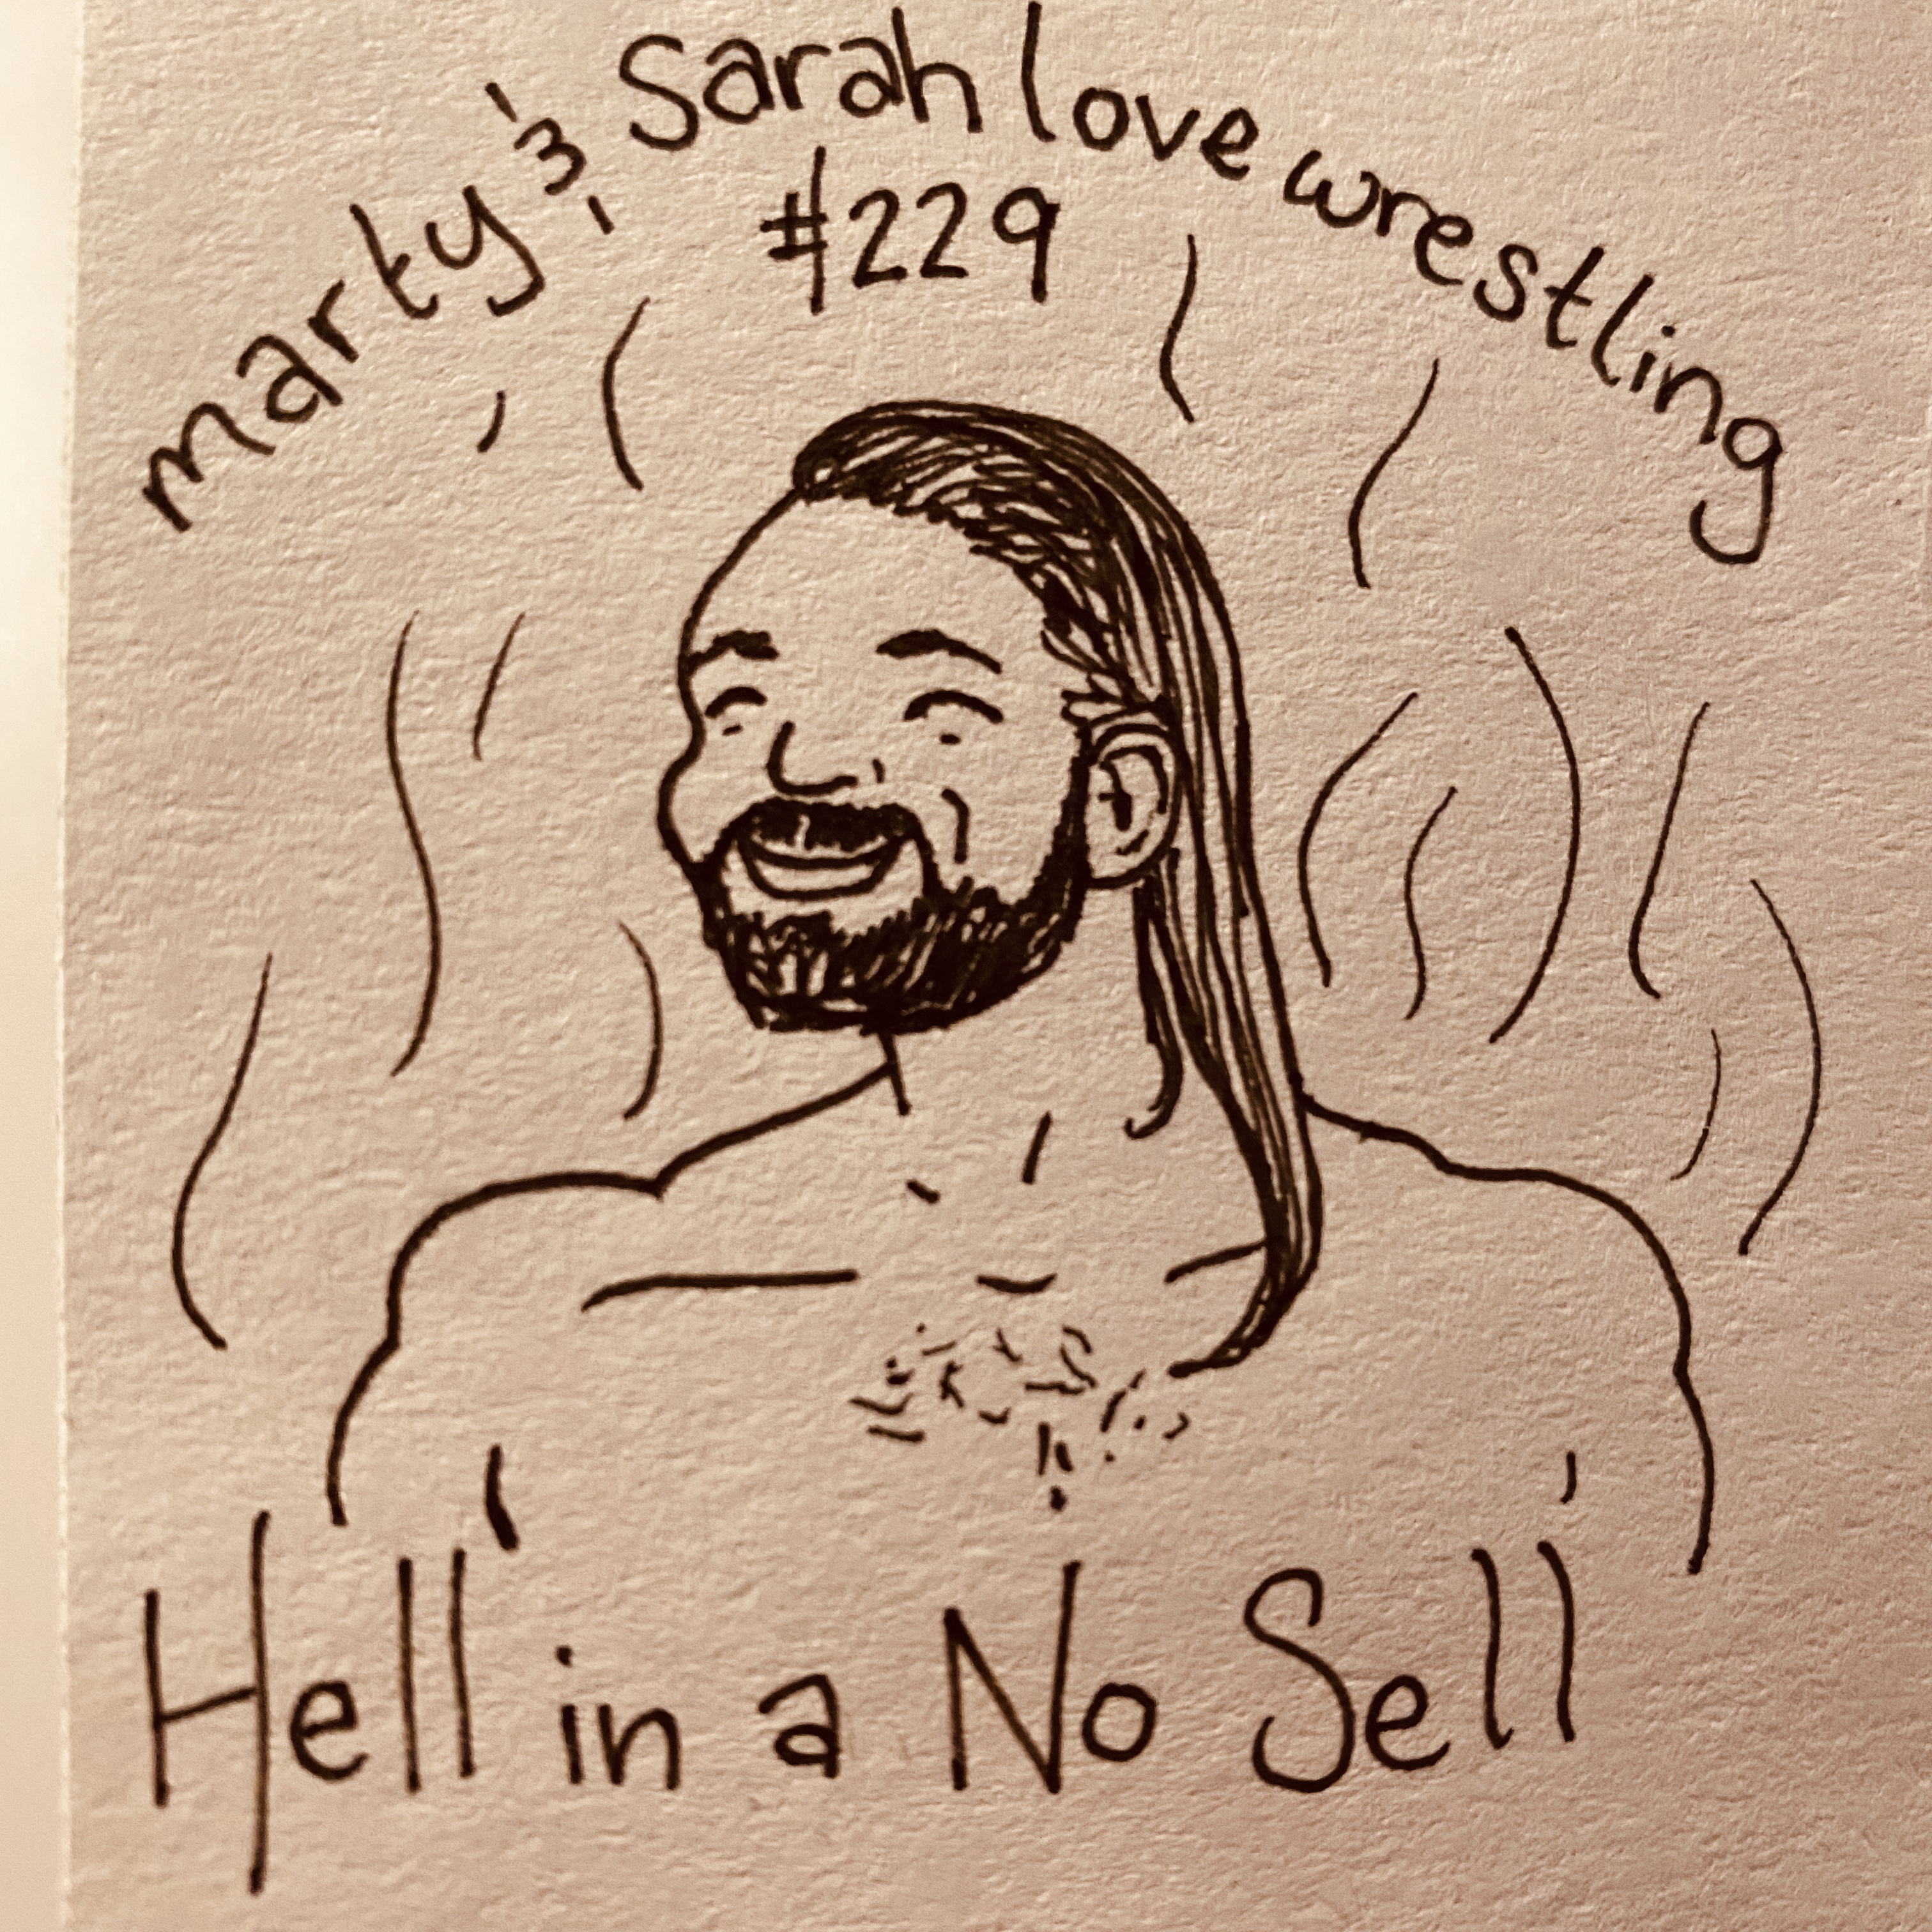 marty & Sarah love wrestling
#229
Hell in a No Sell